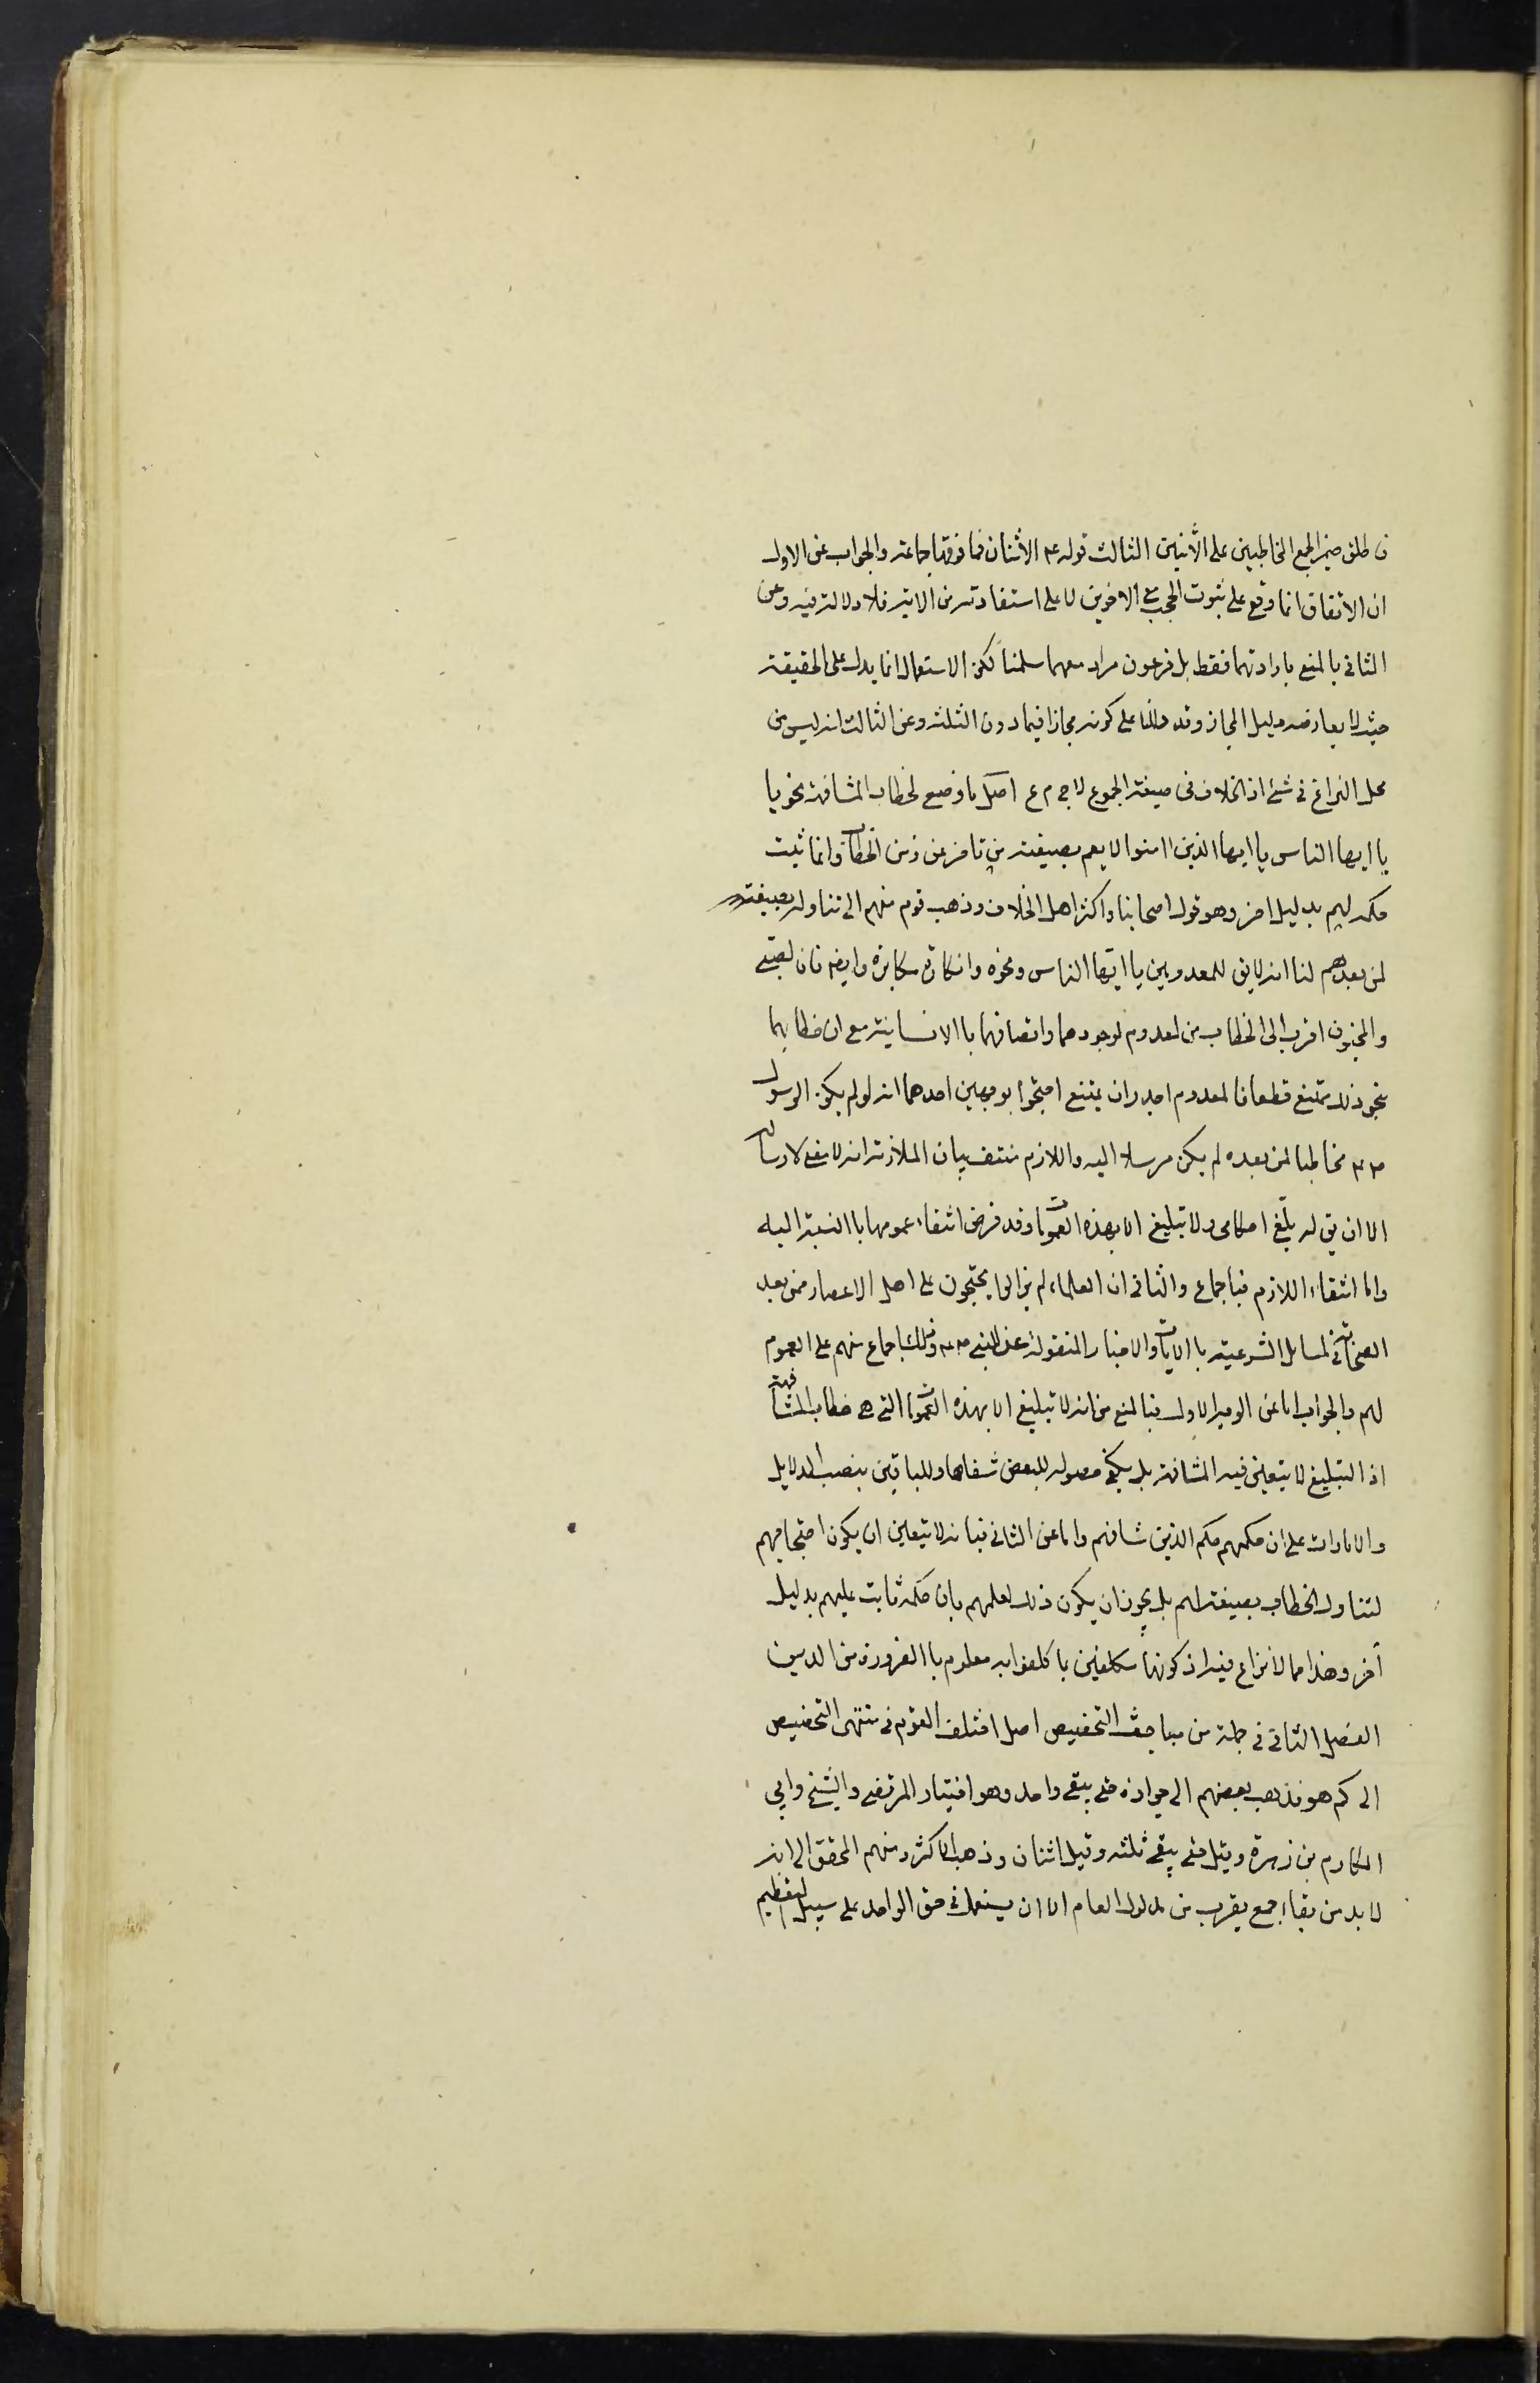 فاطلق ضمير الجمع المخاطبين على الاثنين الثالث قوله ع الاثنان فما فوقها جماعة والجواب عن الاول
ان الاتفاق انما وقع على ثبوت الحجب مع الاخوين لا على استفادته من الاية فلا دلالة فيه وعن
الثاني بالمنع بارادتهما فقط بل فرعون مراد معهما سلمنا لكن الاستعمال انما يدل على الحقيقة
حيث لا يعارضه دليل المجاز وقد دللنا على كونه مجازا فيما دون الثلثة وعن الثالث انه ليس من
محل النزاع في شئ اذ الخلاف في صيغة الجموع لا ج م ع اصل ما وضع لخطاب المشافهة نحو يا
يا ايها الناس يا ايها الذين امنوا لا يعم بصيغته من تاخر عن زمن الخطاب وانما ثبت
حكمه لهم بدليل اخر وهو قول اصحابنا واكثر اهل الخلاف وذهب قوم منهم الى تناوله بصيغته
لمن بعدهم لنا انه لا يق للمعدومين يا ايها الناس ونحوه وانكاره مكابرة وايضا فان الصبي
والمجنون اقرب الى الخطاب من المعدوم لوجودهما واتصافهما با الانسانية مع ان خطابهما
بنحو ذلك ممتنع قطعا فالمعدوم اجدر ان يمتنع احتجوا بوجهين احدهما انه لو لم يكن الرسول
ص ع مخاطبا لمن بعده لم يكن مرسلا اليه واللازم منتف بيان الملازمة انه لا معنى لارساله
الا ان يق له بلغ احكامي ولا تبليغ الا بهذه العمومات وقد فرض انتفاء عمومها با النسبة اليه
واما انتفاء اللازم فبا جماع والثاني ان العلماء لم يزالوا يحتجون على اهل الاعصار ممن بعد
الصحابة في المسايل الشرعية با الايات والاخبار المنقولة عن النبي ص ع وذلك اجماع منهم على العموم
لهم والجواب اما عن الوجه الاول فبا المنع من انه لا تبليغ الا بهذه العمومات التي هي خطاب المشافهة
اذ التبليغ لا يتعين فيه المشافهة بل يكفي حصوله للبعض شفاها وللباقين بنصب الدلايل
والامارات على ان حكمهم حكم الذين شافههم واما عن الثاني فبانه لا يتعين ان يكون احتجاجهم
لتناول الخطاب بصيغته لهم بل يجوز ان يكون ذلك لعلمهم بان حكمه ثابت عليهم بدليل
آخر وهذا مما لا نزاع فيه اذ كوننا مكلفين با كلفوا به معلوم با الضرورة من الدين
الفصل الثاني في جملة من مباحث التخصيص اصل اختلف القوم في منتهى التخصيص
الى كم هو فذهب بعضهم الى جوازه حتى يبقى واحد وهو اختيار المرتضى والشيخ وابي
المكارم بن زهرة وقيل حتى يبقى ثلثه وقيل اثنان وذهب الاكثر ومنهم المحقق الى انه
لا بد من بقاء جمع يقرب من مدلول العام الا ان يستعمل في حق الواحد على سبيل التعظيم